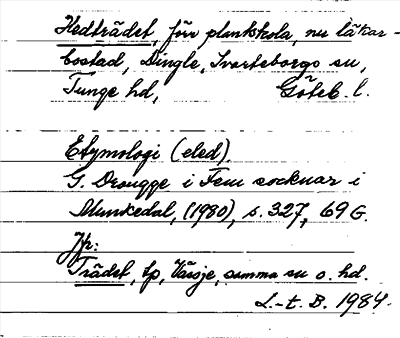 Hedträdet, förr plankskola, nu läkar-
bostad, Dingle, Svarteborgs sn,
Tunge hd, Göteb. l.
Etymologi (eled).
G. Drougge i Fem socknar i
Munkedal, (1980), s. 327, 69 G.
Jfr:
Trädet, tp, Vässje, samma sn o. hd.
L-t. B. 1984.